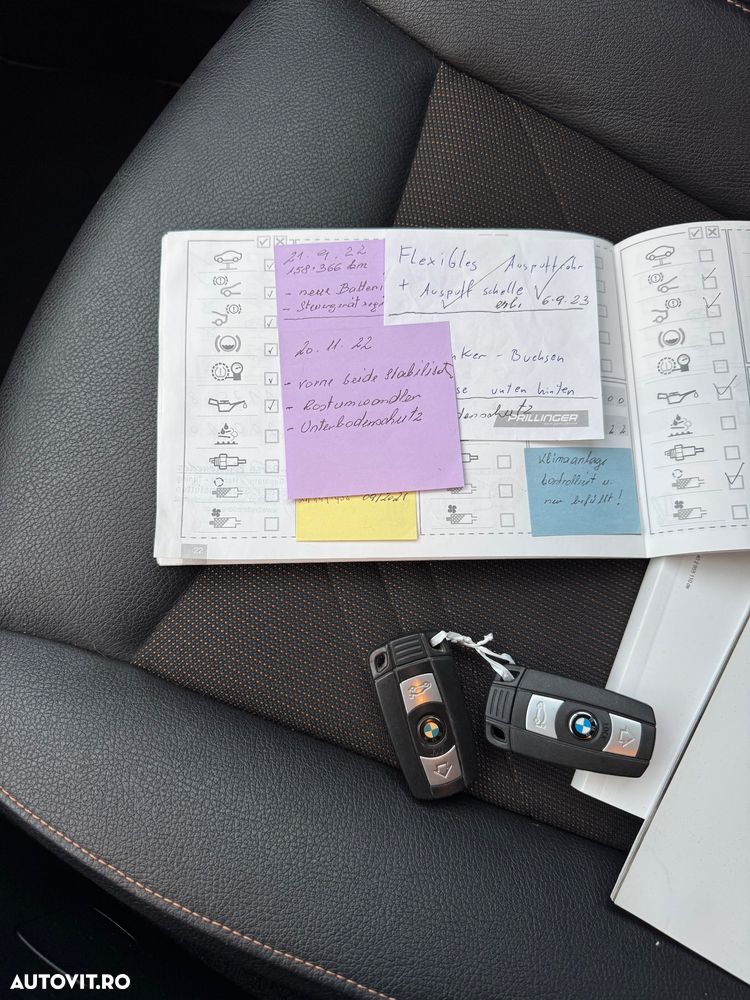 21.9.22
158.366 km
- neue Batteri
- Steuergerät
Flexibles Auspuffrohr
+ Auspuffschelle
6.9.23
20.11.22
- vorne beide Stabilisat
- Rostumwandler
- Unterbodenschutz
nker - Buchsen
se unten hinten
denschutz
PRILLINGER
Klimaanlage
kontrolliert u.
neu befüllt!
09/2021
22
BMW
AUTOVIT.RO